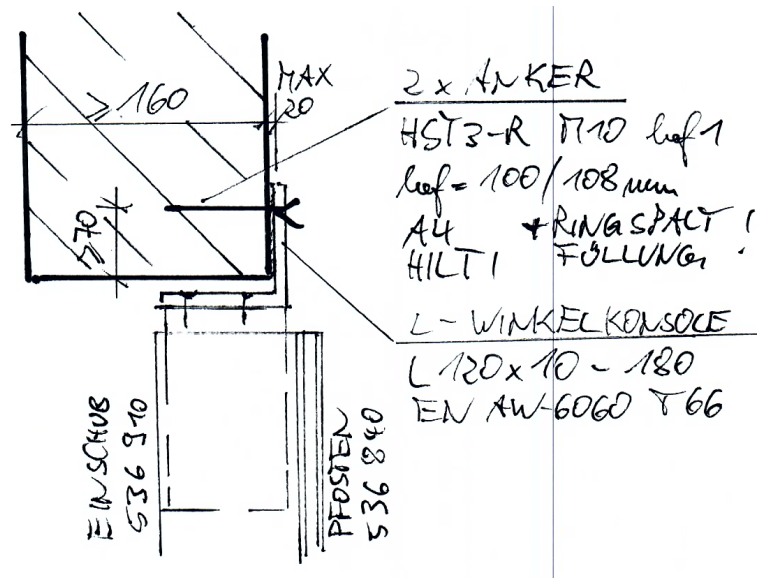 ≥160
MAX
20
≥70
2 x ANKER
HST3-R M10 hef1
hef = 100/108 mm
A4 + RINGSPALT !
HILTI FÜLLUNG
L-WINKELKONSOLE
L 120x10-180
EN AW-6060 T66
EINSCHUB
536 910
PFOSTEN
536 840